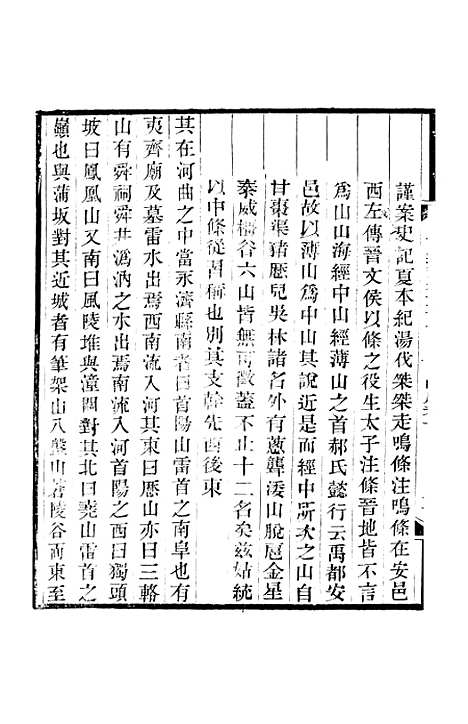 謹案史記夏本紀湯伐桀桀走鳴條注鳴條在安邑
西左傳晉文侯以條之役生太子注條晉地皆不言
爲山山海經中山經薄山之首郝氏懿行云禹都安
邑故以薄山爲中山其說近是而經中所次之山自
甘棗渠豬歷兒吳林諸名外有蔥聾涹山脫扈金星
泰威橿谷六山皆無可徵蓋不止十二名矣茲姑統
以中條從習稱也別其支幹先西後東
其在河曲之中當永濟縣南者曰首陽山雷首之南阜也有
夷齊廟及墓雷水出焉西南流入河其東曰歷山亦曰三輅
山有舜祠舜井溈汭之水出焉南流入河首陽之西曰獨頭
坡曰鳳凰山又南曰風陵堆與潼關對其北曰堯山雷首之
嶺也與蒲坂對其近城者有筆架山八盤山蒼陵谷而東至